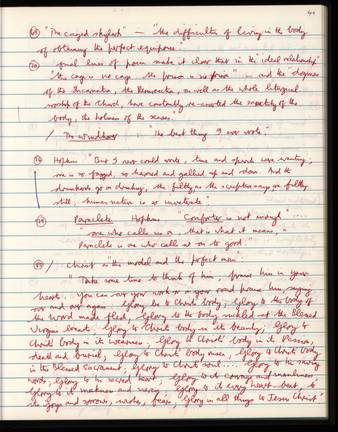 "The caged skylark" — "the difficulties of living in the body
of obtaining the perfect equipoise"
final lines of poem make it clear that in the "ideal relationship"
"the cage is no cage the prison is no prison" — and the "dogmas
of the Incarnation, the Resurrection, as well as the whole liturgical
worship of the Church, have constantly re-asserted the sanctity of the
body, the holiness of the senses"
/ The windhover "the best thing I ever wrote"
Hopkins "But I never could write, time and spirit were wanting;
one is so fagged, so harried and galled up and down. And the
drunkards go on drinking, the filthy, as the scripture says, are filthy
still: human nature is so inveterate"
Paraclete Hopkins "Comforter is not enough"
"one who calls us on, that is what it means, a
Paraclete is one who calls us on to good"
/ Christ is "the model and the perfect man"
"Take some time to think of him, praise him in your
heart. You can over your work or on your road praise him, saying
over and over again Glory be to Christ's body; Glory to the body of
the Word made flesh; Glory to the body suckled at the Blessed
Virgin's breasts; Glory to Christ's body in its beauty; Glory to
Christ's body in its weariness; Glory to Christ's body in its Passion,
death and burial; Glory to Christ's body risen; Glory to Christ's body
in the Blessed Sacrament; Glory to Christ's soul.... Glory to his saving
words; Glory to his sacred heart; Glory to its courage and manliness
Glory to its meekness and mercy; Glory to its every heart-beat, to
its joys and sorrows, wishes, fears; Glory in all things to Jesus Christ"